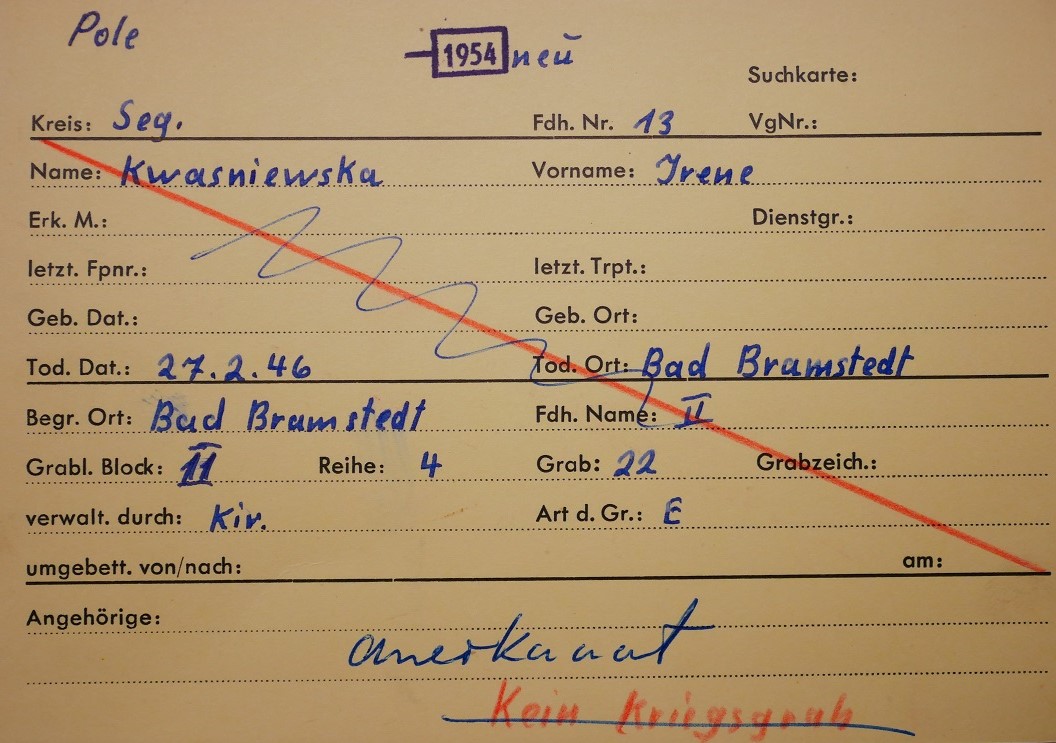 Pole
1954 neu
Suchkarte:
Kreis: Seg. Fdh. Nr. 13 VgNr.:
Name: Kwasniewska Vorname: Irene
Erk. M.: Dienstgr.:
letzt. Fpnr.: letzt. Trpt.:
Geb. Dat.: Geb. Ort:
Tod. Dat.: 27.2.46 Tod. Ort: Bad Bramstedt
Begr. Ort: Bad Bramstedt Fdh. Name: II
Grabl. Block: II Reihe: 4 Grab: 22 Grabzeich.:
verwalt. durch: Kir. Art d. Gr.: E
umgebett. von/nach: am:
Angehörige:
anerkannt
Kein Kriegsgrab